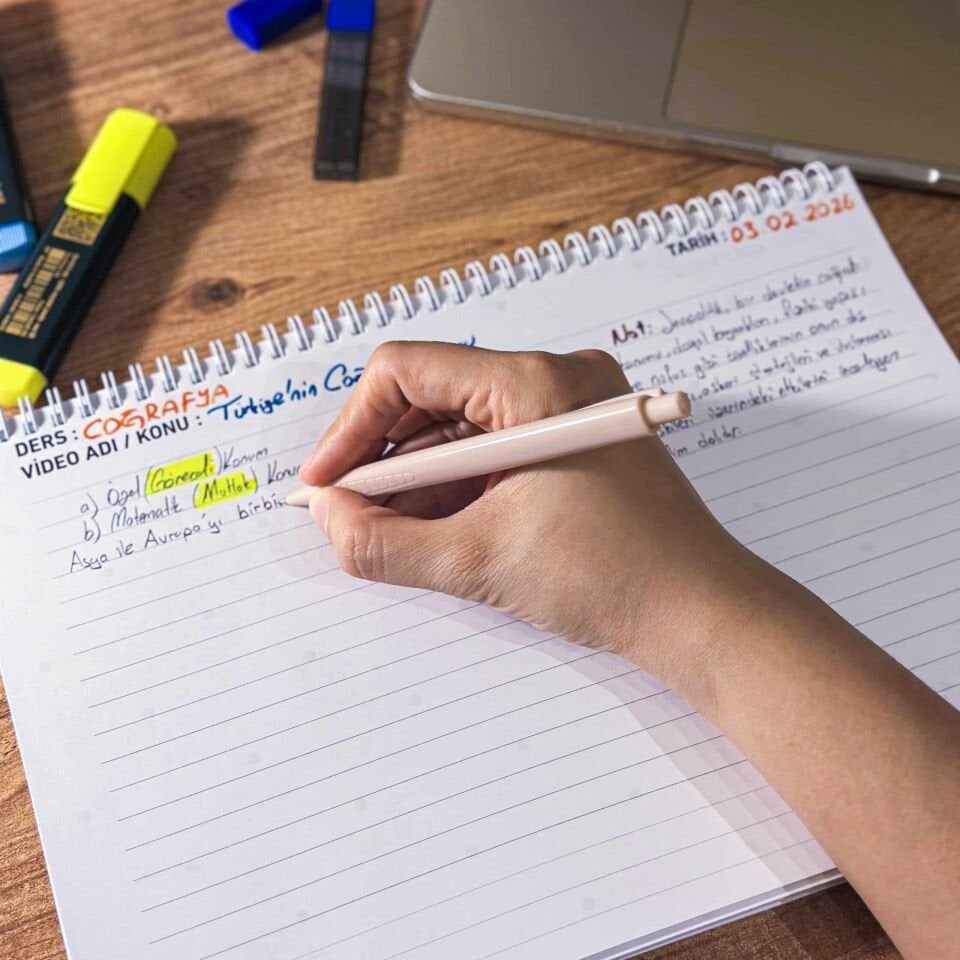 TARİH : 03 02 2026
DERS : COĞRAFYA
VİDEO ADI / KONU : Türkiye'nin Coğ
a) Özel (Göreceli) Konum
b) Matematik (Mutlak) Konu
Asya ile Avrupa'yı birbir
Not: Jeopolitik, bir devletin coğrafi
konumu, doğal kaynakları, fiziki yapısı
ve nüfus gibi özelliklerinin onun dış
askeri stratejileri ve uluslararası
üzerindeki etkilerini inceleyen
dalıdır.